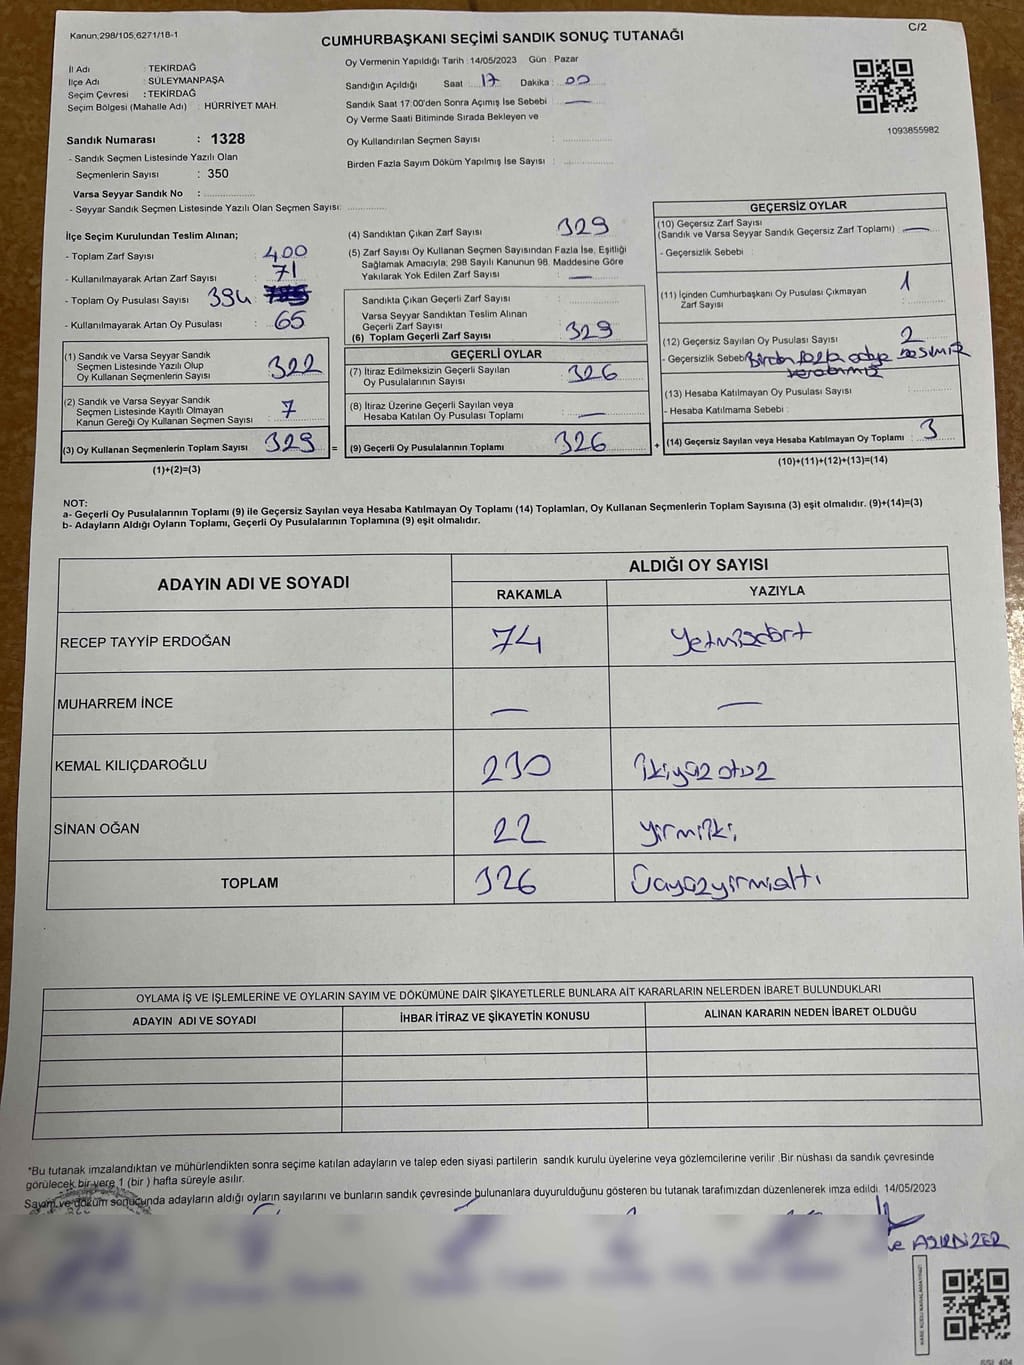 Kanun,298/105,6271/18-1
C/2
CUMHURBAŞKANI SEÇİMİ SANDIK SONUÇ TUTANAĞI
İl Adı : TEKİRDAĞ
İlçe Adı : SÜLEYMANPAŞA
Seçim Çevresi : TEKİRDAĞ
Seçim Bölgesi (Mahalle Adı) : HÜRRİYET MAH.
Sandık Numarası : 1328
- Sandık Seçmen Listesinde Yazılı Olan
Seçmenlerin Sayısı : 350
Varsa Seyyar Sandık No :
- Seyyar Sandık Seçmen Listesinde Yazılı Olan Seçmen Sayısı:
Oy Vermenin Yapıldığı Tarih : 14/05/2023 Gün : Pazar
Sandığın Açıldığı Saat : 17 Dakika : 00
Sandık Saat 17.00'den Sonra Açımış İse Sebebi : —
Oy Verme Saati Bitiminde Sırada Bekleyen ve
Oy Kullandırılan Seçmen Sayısı :
Birden Fazla Sayım Döküm Yapılmış İse Sayısı :
1093855982
İlçe Seçim Kurulundan Teslim Alınan;
- Toplam Zarf Sayısı : 400
- Kullanılmayarak Artan Zarf Sayısı : 71
- Toplam Oy Pusulası Sayısı 394
- Kullanılmayarak Artan Oy Pusulası : 65
(1) Sandık ve Varsa Seyyar Sandık
Seçmen Listesinde Yazılı Olup
Oy Kullanan Seçmenlerin Sayısı : 322
(2) Sandık ve Varsa Seyyar Sandık
Seçmen Listesinde Kayıtlı Olmayan
Kanun Gereği Oy Kullanan Seçmen Sayısı : 7
(3) Oy Kullanan Seçmenlerin Toplam Sayısı : 329 =
(1)+(2)=(3)
(4) Sandıktan Çıkan Zarf Sayısı : 329
(5) Zarf Sayısı Oy Kullanan Seçmen Sayısından Fazla İse, Eşitliği
Sağlamak Amacıyla; 298 Sayılı Kanunun 98. Maddesine Göre
Yakılarak Yok Edilen Zarf Sayısı : —
Sandıkta Çıkan Geçerli Zarf Sayısı :
Varsa Seyyar Sandıktan Teslim Alınan
Geçerli Zarf Sayısı
(6) Toplam Geçerli Zarf Sayısı : 329
GEÇERLİ OYLAR
(7) İtiraz Edilmeksizin Geçerli Sayılan
Oy Pusulalarının Sayısı : 326
(8) İtiraz Üzerine Geçerli Sayılan veya
Hesaba Katılan Oy Pusulası Toplamı : —
(9) Geçerli Oy Pusulalarının Toplamı : 326 +
GEÇERSİZ OYLAR
(10) Geçersiz Zarf Sayısı
(Sandık ve Varsa Seyyar Sandık Geçersiz Zarf Toplamı) : —
- Geçersizlik Sebebi :
(11) İçinden Cumhurbaşkanı Oy Pusulası Çıkmayan
Zarf Sayısı : 1
(12) Geçersiz Sayılan Oy Pusulası Sayısı : 2
- Geçersizlik Sebebi Birden fazla adaya
(13) Hesaba Katılmayan Oy Pusulası Sayısı :
- Hesaba Katılmama Sebebi :
(14) Geçersiz Sayılan veya Hesaba Katılmayan Oy Toplamı : 3
(10)+(11)+(12)+(13)=(14)
NOT:
a- Geçerli Oy Pusulalarının Toplamı (9) ile Geçersiz Sayılan veya Hesaba Katılmayan Oy Toplamı (14) Toplamları, Oy Kullanan Seçmenlerin Toplam Sayısına (3) eşit olmalıdır. (9)+(14)=(3)
b- Adayların Aldığı Oyların Toplamı, Geçerli Oy Pusulalarının Toplamına (9) eşit olmalıdır.
ADAYIN ADI VE SOYADI
ALDIĞI OY SAYISI
RAKAMLA YAZIYLA
RECEP TAYYİP ERDOĞAN 74 Yetmişdört
MUHARREM İNCE — —
KEMAL KILIÇDAROĞLU 230 İkiyüz otuz
SİNAN OĞAN 22 yirmiiki
TOPLAM 326 Üçyüzyirmialtı
OYLAMA İŞ VE İŞLEMLERİNE VE OYLARIN SAYIM VE DÖKÜMÜNE DAİR ŞİKAYETLERLE BUNLARA AİT KARARLARIN NELERDEN İBARET BULUNDUKLARI
ADAYIN ADI VE SOYADI İHBAR İTİRAZ VE ŞİKAYETİN KONUSU ALINAN KARARIN NEDEN İBARET OLDUĞU
*Bu tutanak imzalandıktan ve mühürlendikten sonra seçime katılan adayların ve talep eden siyasi partilerin sandık kurulu üyelerine veya gözlemcilerine verilir .Bir nüshası da sandık çevresinde
görülecek bir yere 1 (bir ) hafta süreyle asılır.
Sayım ve döküm sonucunda adayların aldığı oyların sayılarını ve bunların sandık çevresinde bulunanlara duyurulduğunu gösteren bu tutanak tarafımızdan düzenlenerek imza edildi. 14/05/2023